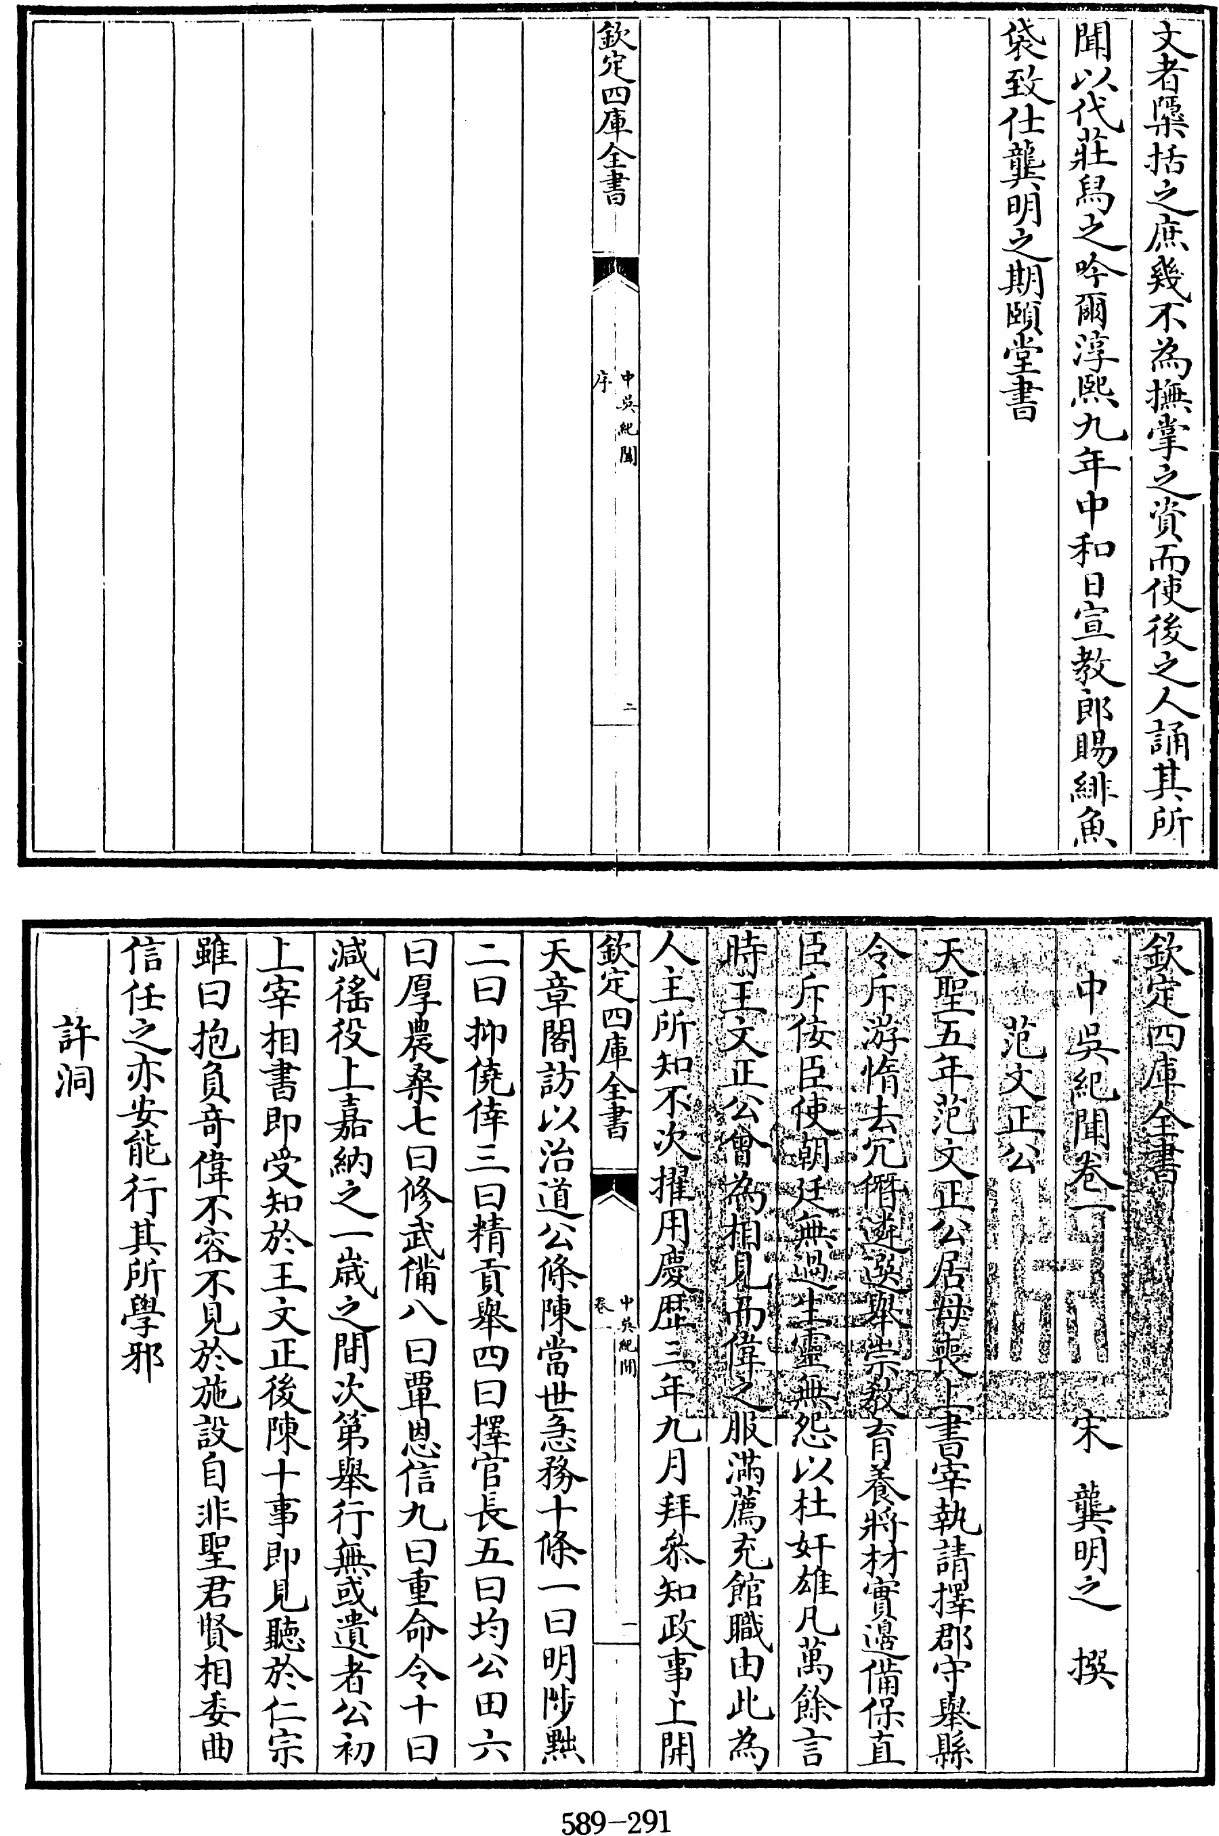 文者檃括之庶幾不為撫掌之資而使後之人誦其所
聞以代莊舄之吟爾淳熙九年中和日宣教郎賜緋魚
袋致仕龔明之期頤堂書
欽定四庫全書
中吳紀聞
序
二
欽定四庫全書
中吳紀聞卷一
宋 龔明之 撰
范文正公
天聖五年范文正公居母喪上書宰執請擇郡守舉縣
令斥游惰去冗僭遴選舉崇教育養將材實邊備保直
臣斥佞臣使朝廷無過生靈無怨以杜奸雄凡萬餘言
時王文正公曾為相見而偉之服滿薦充館職由此為
人主所知不次擢用慶歷三年九月拜叅知政事上開
欽定四庫全書
中吳紀聞
卷一
一
天章閣訪以治道公條陳當世急務十條一曰明陟黜
二曰抑僥倖三曰精貢舉四曰擇官長五曰均公田六
曰厚農桑七曰修武備八曰覃恩信九曰重命令十曰
減徭役上嘉納之一歲之間次第舉行無或遺者公初
上宰相書即受知於王文正後陳十事即見聽於仁宗
雖曰抱負奇偉不容不見於施設自非聖君賢相委曲
信任之亦安能行其所學邪
許洞
589-291